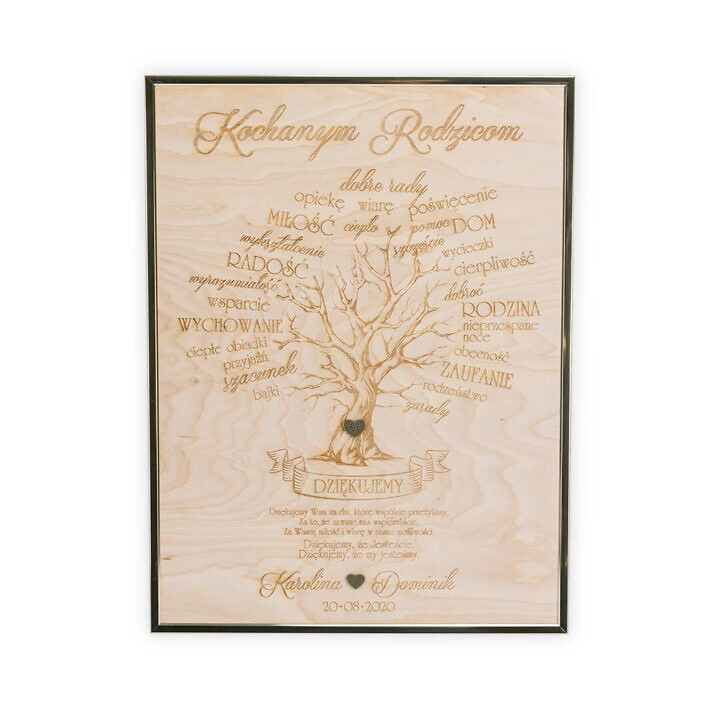 Kochanym Rodzicom
dobre rady
opiekę wiarę poświęcenie
MIŁOŚĆ ciepło pomoc DOM
wykształcenie szczęście wycieczki
RADOŚĆ cierpliwość
wyrozumiałość dobroć
wsparcie RODZINA
WYCHOWANIE nieprzespane
noce
ciepłe obiadki obecność
przyjaźń ZAUFANIE
szacunek rodzeństwo
bajki zasady
DZIĘKUJEMY
Dziękujemy Wam za dni, które wspólnie przeżyliśmy.
Za to, że zawsze nas wspieraliście,
Za Waszą miłość i wiarę w nasze możliwości.
Dziękujemy, że Jesteście,
Dziękujemy, że my jesteśmy.
Karolina Dominik
20-08-2020